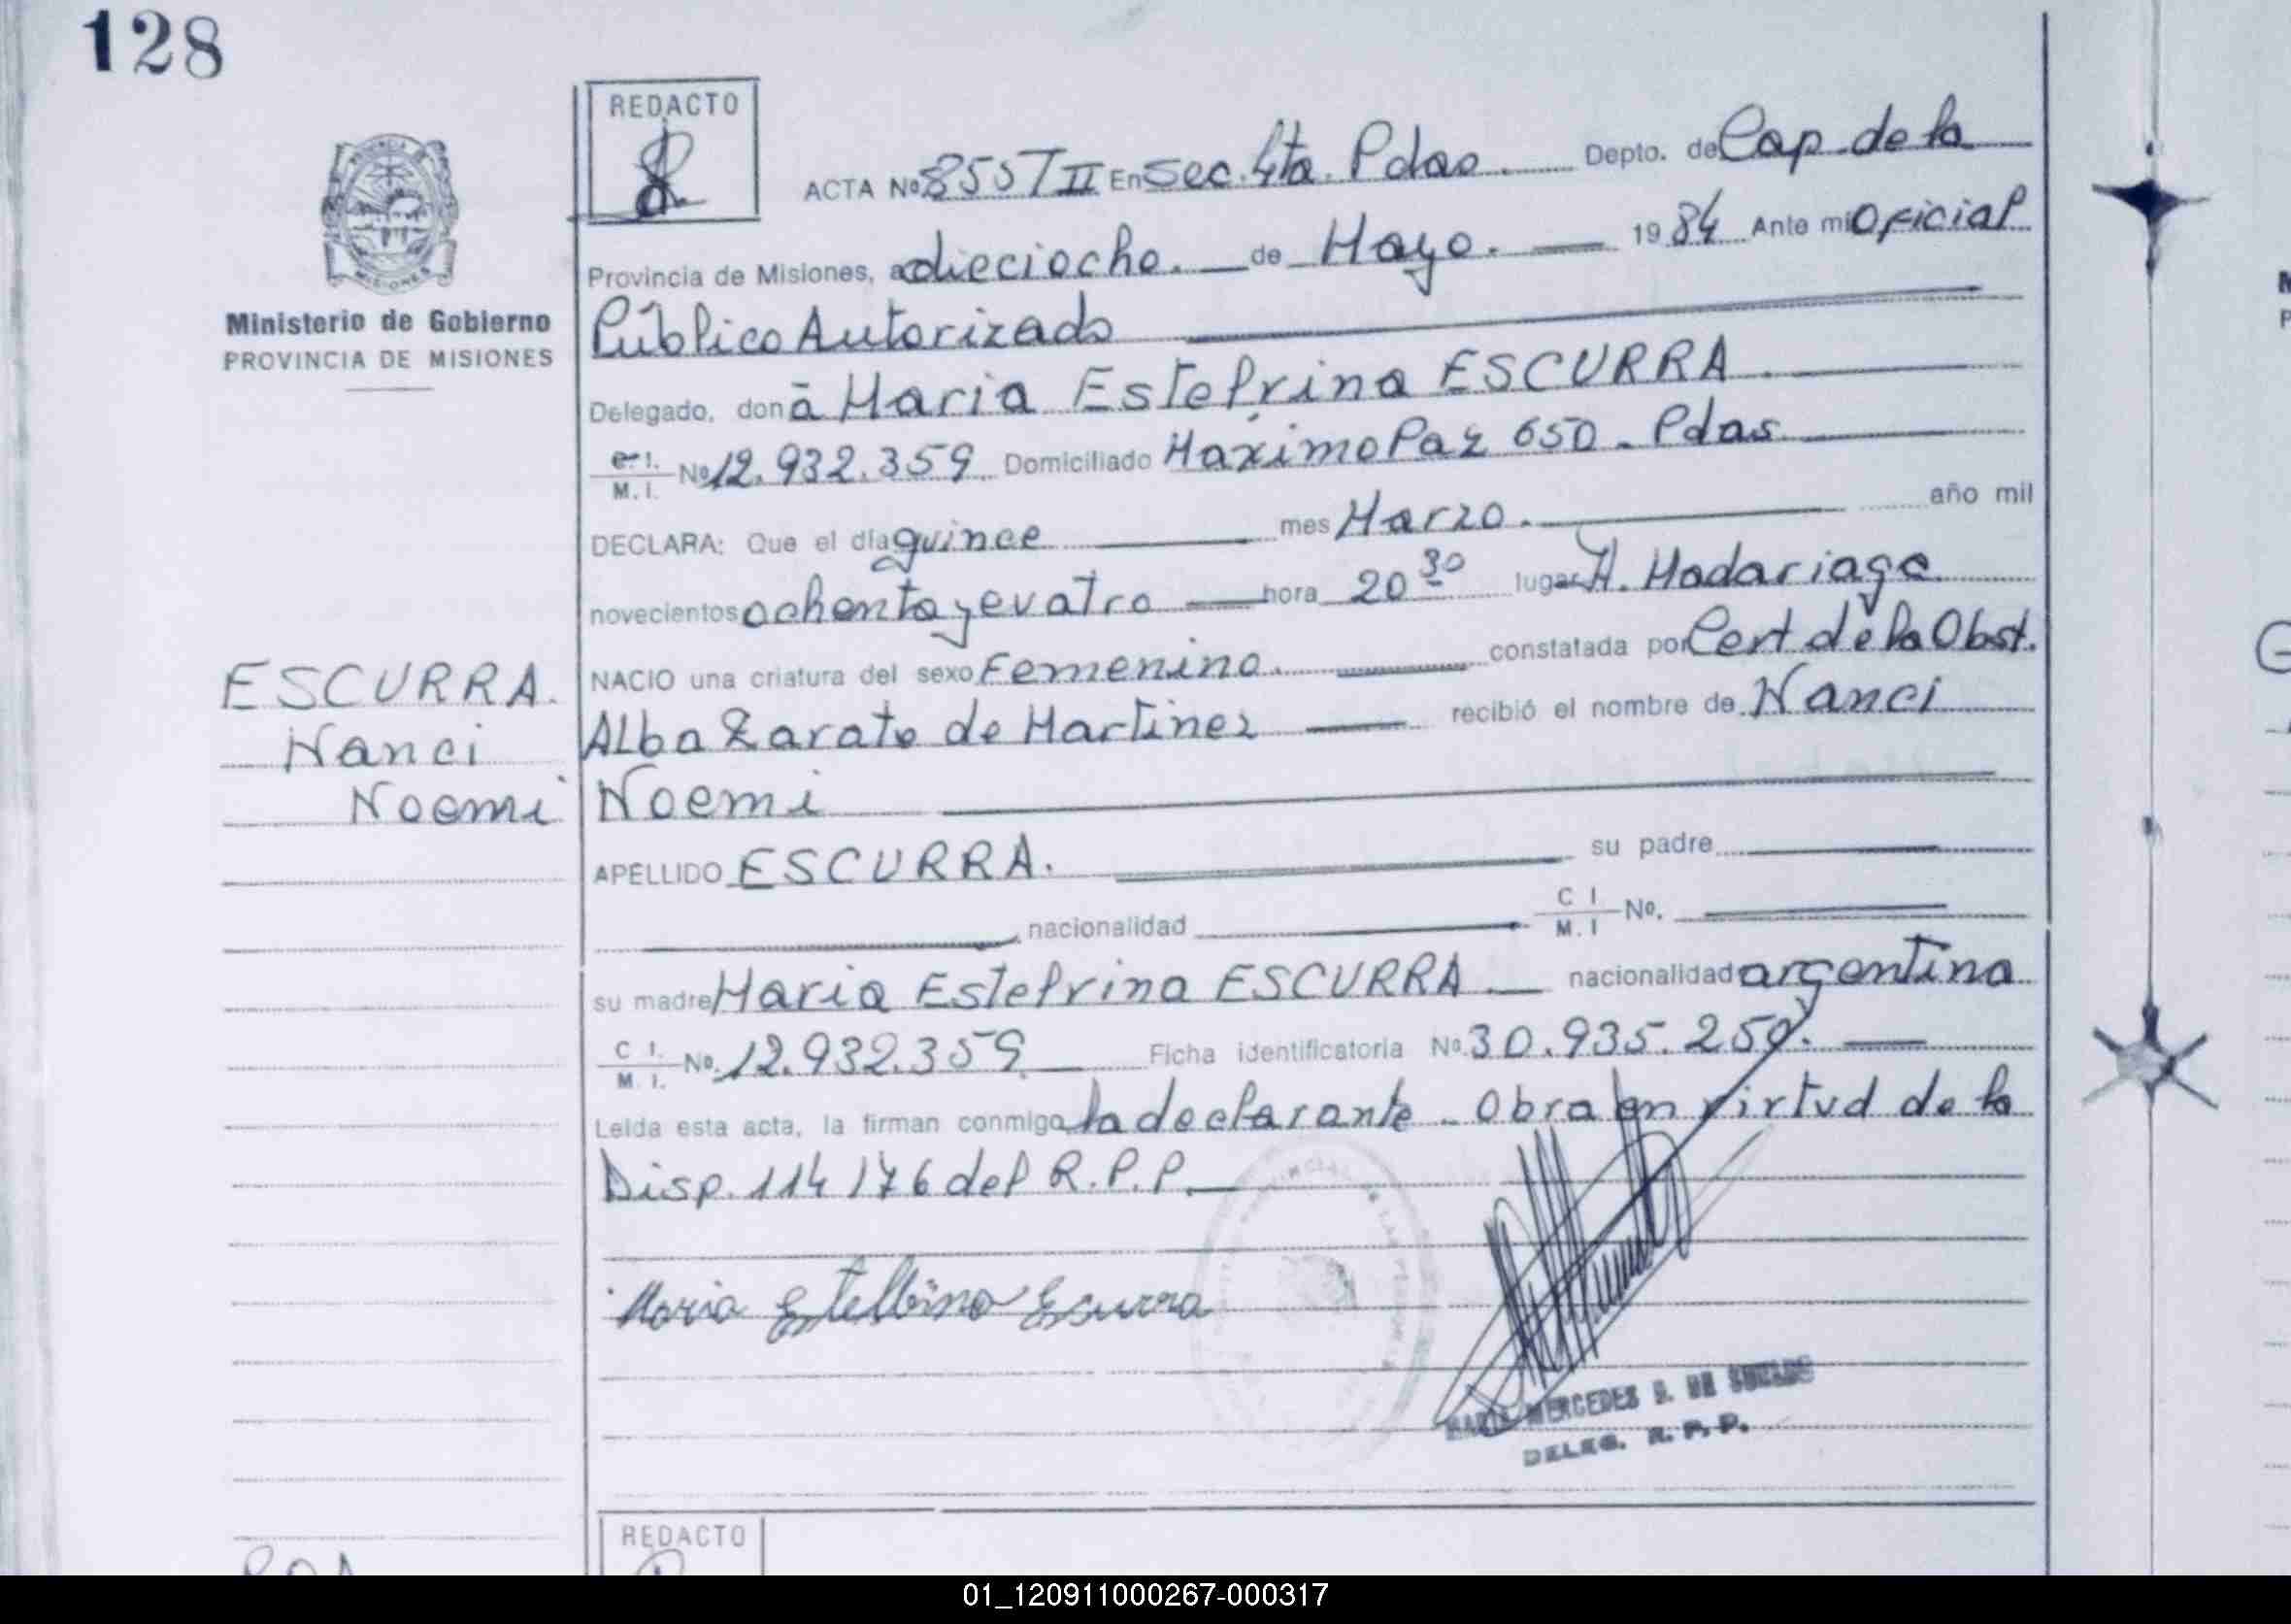 128
REDACTO
ACTA Nº 855 T II En Sec. 4ta. Pdas. Depto. de Cap. de la
Provincia de Misiones, a dieciocho. de Mayo. 1984 Ante mi Oficial
Ministerio de Gobierno
PROVINCIA DE MISIONES
Público Autorizado
Delegado, don a Maria Estelvina ESCURRA.
C. I. M. I. Nº 12.932.359 Domiciliado Maximo Paz 650 - Pdas.
DECLARA: Que el día quince mes Marzo. año mil
novecientos ochenta y cuatro hora 20 30 lugar H. Madariaga
NACIO una criatura del sexo Femenino. constatada por Cert. de la Obst.
Alba Zarate de Martinez recibió el nombre de Nanci
Noemi
ESCURRA.
Nanci
Noemi
APELLIDO ESCURRA. su padre
nacionalidad C I M. I Nº.
su madre Maria Estelvina ESCURRA nacionalidad argentina
C I. M. I. Nº. 12.932.359 Ficha identificatoria Nº. 30.935.259.
Leida esta acta, la firman conmigo la declarante - Obra en virtud de la
Disp. 114/76 del R.P.P.
Maria Estelbina Escurra
MERCEDES
DELEG. R. P. P.
REDACTO
01_120911000267-000317